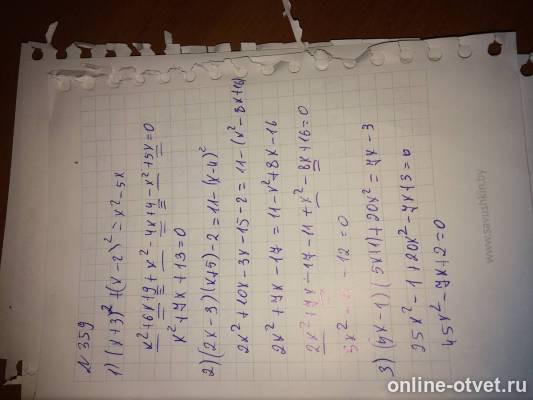 №359
1) (x+3)² + (x-2)² = x² - 5x
x² + 6x + 9 + x² - 4x + 4 - x² + 5x = 0
x² + 7x + 13 = 0
2) (2x-3)(x+5) - 2 = 11 - (x-4)²
2x² + 10x - 3x - 15 - 2 = 11 - (x² - 8x + 16)
2x² + 7x - 17 = 11 - x² + 8x - 16
2x² + 7x - 17 - 11 + x² - 8x + 16 = 0
3x² - - 12 = 0
3) (5x-1)(5x+1) + 20x² = 7x - 3
25x² - 1 + 20x² - 7x + 3 = 0
45x² - 7x + 2 = 0
www.savushkin.by
online-otvet.ru